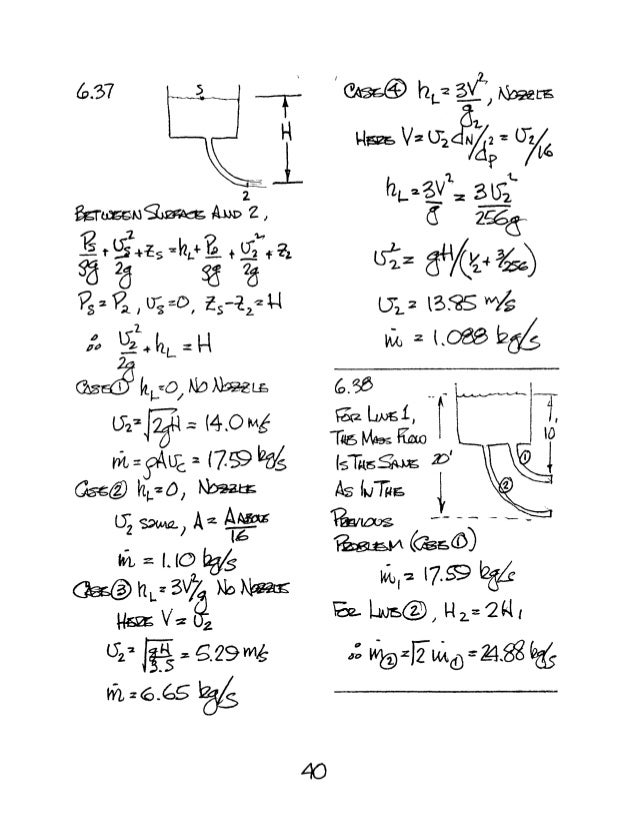 6.37
S
H
2
BETWEEN SURFACE AND 2,
Ps/ρg + υs²/2g + Zs = hL + P2/ρg + υ2²/2g + Z2
Ps = P2, υs = 0, Zs - Z2 = H
∴ υ2²/2g + hL = H
CASE ① hL = 0, NO NOZZLE
υ2 = √2gH = 14.0 m/s
ṁ = ρAυc = 17.59 kg/s
CASE ② hL = 0, NOZZLE
υ2 same, A = A ABOVE/16
ṁ = 1.10 kg/s
CASE ③ hL = 3V²/g No NOZZLE
HERE V = υ2
υ2 = √gH/3.5 = 5.29 m/s
ṁ = 6.65 kg/s
CASE ④ hL = 3V²/g, NOZZLE
HERE V = υ2 dN²/dp² = υ2/16
hL = 3V²/g = 3υ2²/256g
υ2² = gH/(1/2 + 3/256)
υ2 = 13.85 m/s
ṁ = 1.088 kg/s
6.38
FOR LINE 1,
THE MASS FLOW
IS THE SAME
AS IN THE
PREVIOUS
PROBLEM (CASE ①)
20'
10
①
②
ṁ1 = 17.59 kg/s
FOR LINE ②, H2 = 2H1
∴ ṁ② = √2 ṁ① = 24.88 kg/s
40